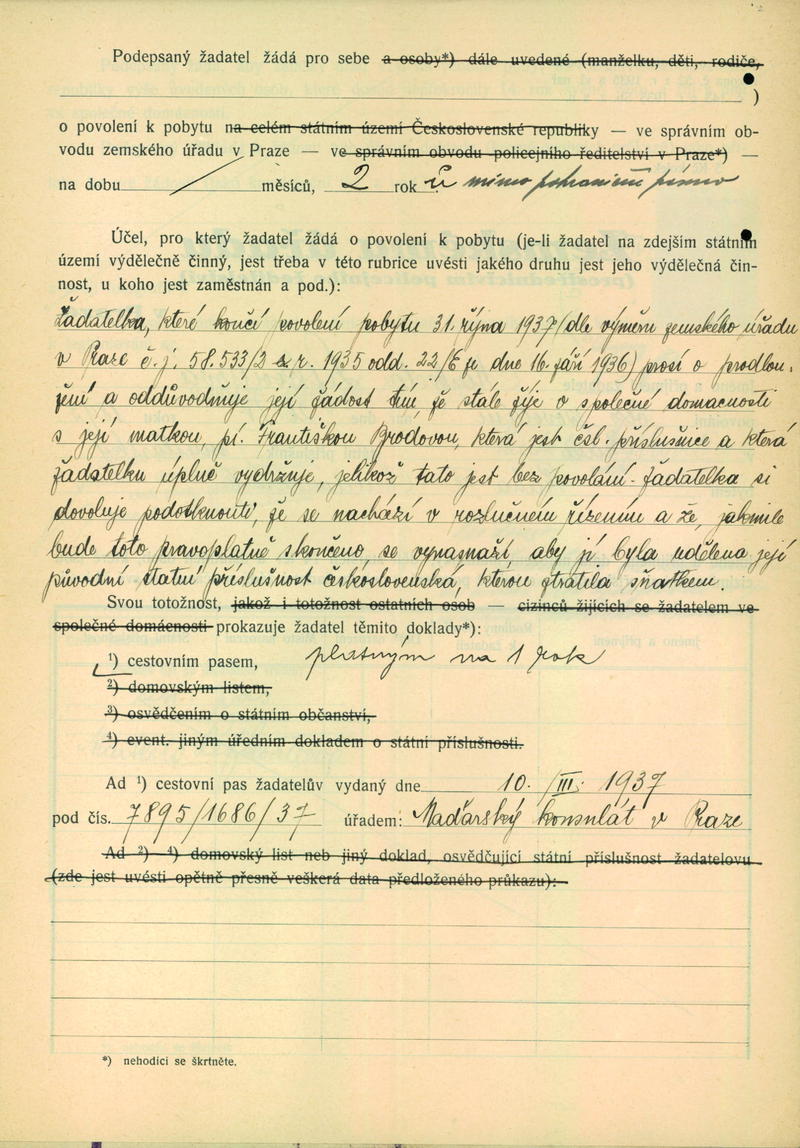 Podepsaný žadatel žádá pro sebe a osoby*) dále uvedené (manželku, děti, rodiče,
)
o povolení k pobytu na celém státním území Československé republiky — ve správním ob-
vodu zemského úřadu v Praze — ve správním obvodu policejního ředitelství v Praze*) —
na dobu / měsíců, 2 rok ů mimo pohraniční pásmo
Účel, pro který žadatel žádá o povolení k pobytu (je-li žadatel na zdejším státním
území výdělečně činný, jest třeba v této rubrice uvésti jakého druhu jest jeho výdělečná čin-
nost, u koho jest zaměstnán a pod.):
Žadatelka, které končí povolení pobytu 31. října 1937 (dle výměru zemského úřadu
v Praze č. j. 58.533/2 z r. 1935 odd. 22/6 ze dne 16. září 1936) prosí o prodlou-
žení a oddůvodňuje její žádost tím, že stále žije v společné domacnosti
s její matkou, pí. Františkou Brodovou, která jest čsl. příslušnice a která
žadatelku úplně vydržuje, jelikož tato jest bez povolání. Žadatelka si
dovoluje podotknouti, že se nachází v rozlučném řízením a že, jakmile
bude toto pravoplatně skončeno, se vynasnaží, aby jí byla udělena její
původní statní příslušnost československá, kterou ztratila sňatkem.
Svou totožnost, jakož i totožnost ostatních osob — cizinců žijících se žadatelem ve
společné domácnosti prokazuje žadatel těmito doklady*):
¹) cestovním pasem, platným na 1 rok
²) domovským listem,
³) osvědčením o státním občanství,
⁴) event. jiným úředním dokladem o státní příslušnosti.
Ad ¹) cestovní pas žadatelův vydaný dne 10. /III. 1937
pod čís. 7895/1686/37 úřadem: Maďarský konsulát v Praze
Ad ²) ⁴) domovský list neb jiný doklad, osvědčující státní příslušnost žadatelovu
(zde jest uvésti opětně přesně veškerá data předloženého průkazu):
*) nehodící se škrtněte.